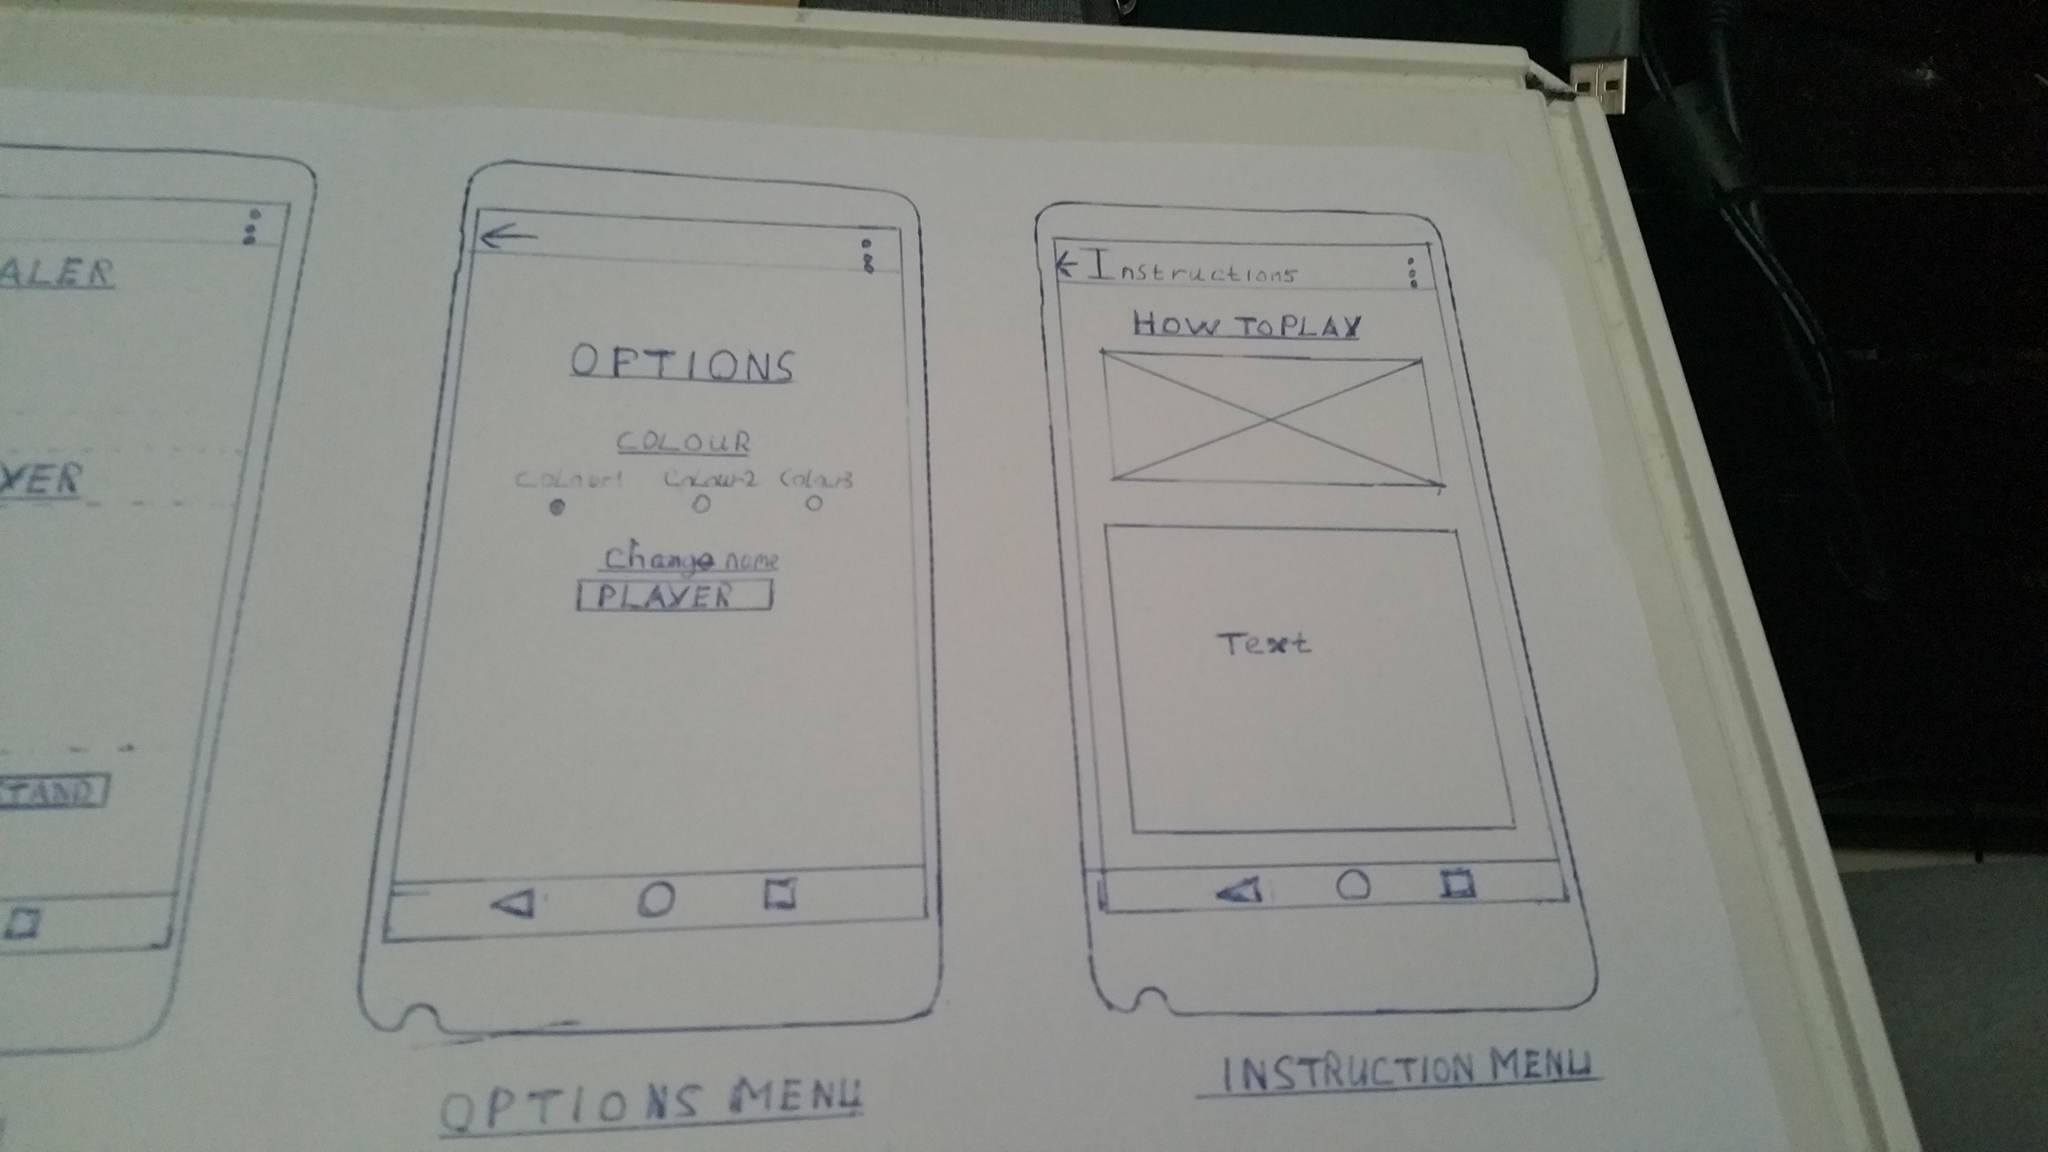 ALER
YER
STAND
OPTIONS
COLOUR
Colour1 Colour2 Colour3
Change name
PLAYER
OPTIONS MENU
Instructions
HOW TO PLAY
Text
INSTRUCTION MENU